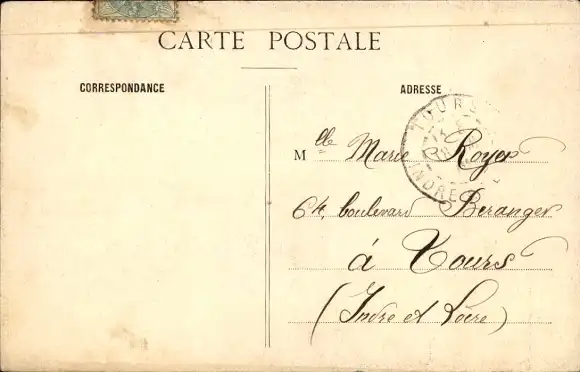 CARTE POSTALE
CORRESPONDANCE
ADRESSE
TOURS
INDRE
Mlle Marie Royer
64, boulevard Béranger
à Tours
(Indre et Loire)